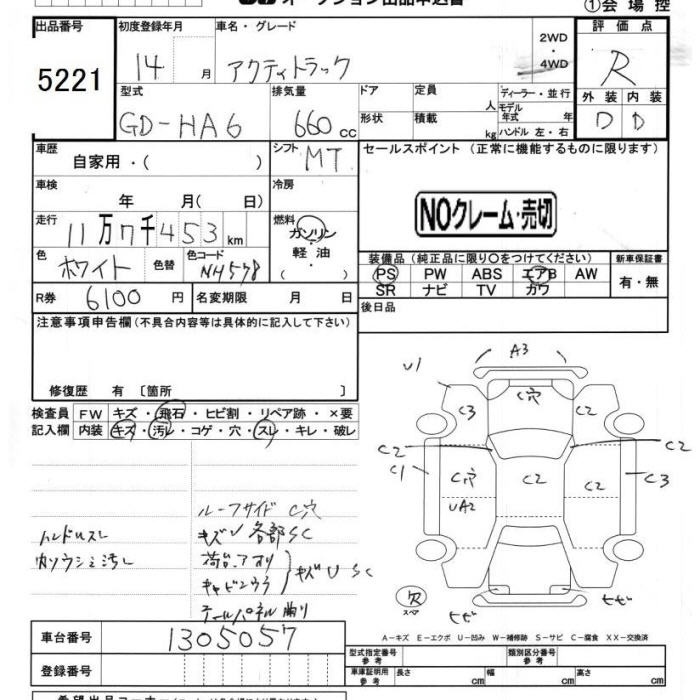 ①会場控
出品番号 初度登録年月 車名・グレード 2WD・4WD 評価点
5221 14月 アクティトラック R
型式 排気量 ドア 定員 人 ディーラー・並行 外装 内装
GD-HA6 660cc 形状 積載 kg モデル年式 年 ハンドル 左・右 D D
車歴 自家用・( ) シフト MT セールスポイント (正常に機能するものに限ります)
車検 年 月( 日) 冷房
NOクレーム・売切
走行 11万7千453km 燃料 ガソリン・軽油・( )
色 ホワイト 色替 色コード NH578
装備品 (純正品に限り○をつけてください) 新車保証書
PS PW ABS エアB AW 有・無
SR ナビ TV カワ
R券 6100円 名変期限 月 日 後日品
注意事項申告欄(不具合内容等は具体的に記入して下さい)
修復歴 有 〔箇所 〕
検査員 FW キズ・飛石・ヒビ割・リペア跡・×要
記入欄 内装 キズ・汚レ・コゲ・穴・スレ・キレ・破レ
ルーフサイド C穴
ハンドルスレ キズU 各部SC
カソウシミ汚レ 荷台、アオリ
キャビンウラ キズU SC
テールパネル曲り
A3
U1
C穴
C3 C2
C2 C2
C1 C穴 C2 C2 C3
UA2
穴 スペア
ヒビ ヒビ
A-キズ E-エクボ U-凹み W-補修跡 S-サビ C-腐食 XX-交換済
車台番号 1305057
型式指定番号 参考 類別区分番号 参考
登録番号
車庫証明用 参考 長さ cm 幅 cm 高さ cm